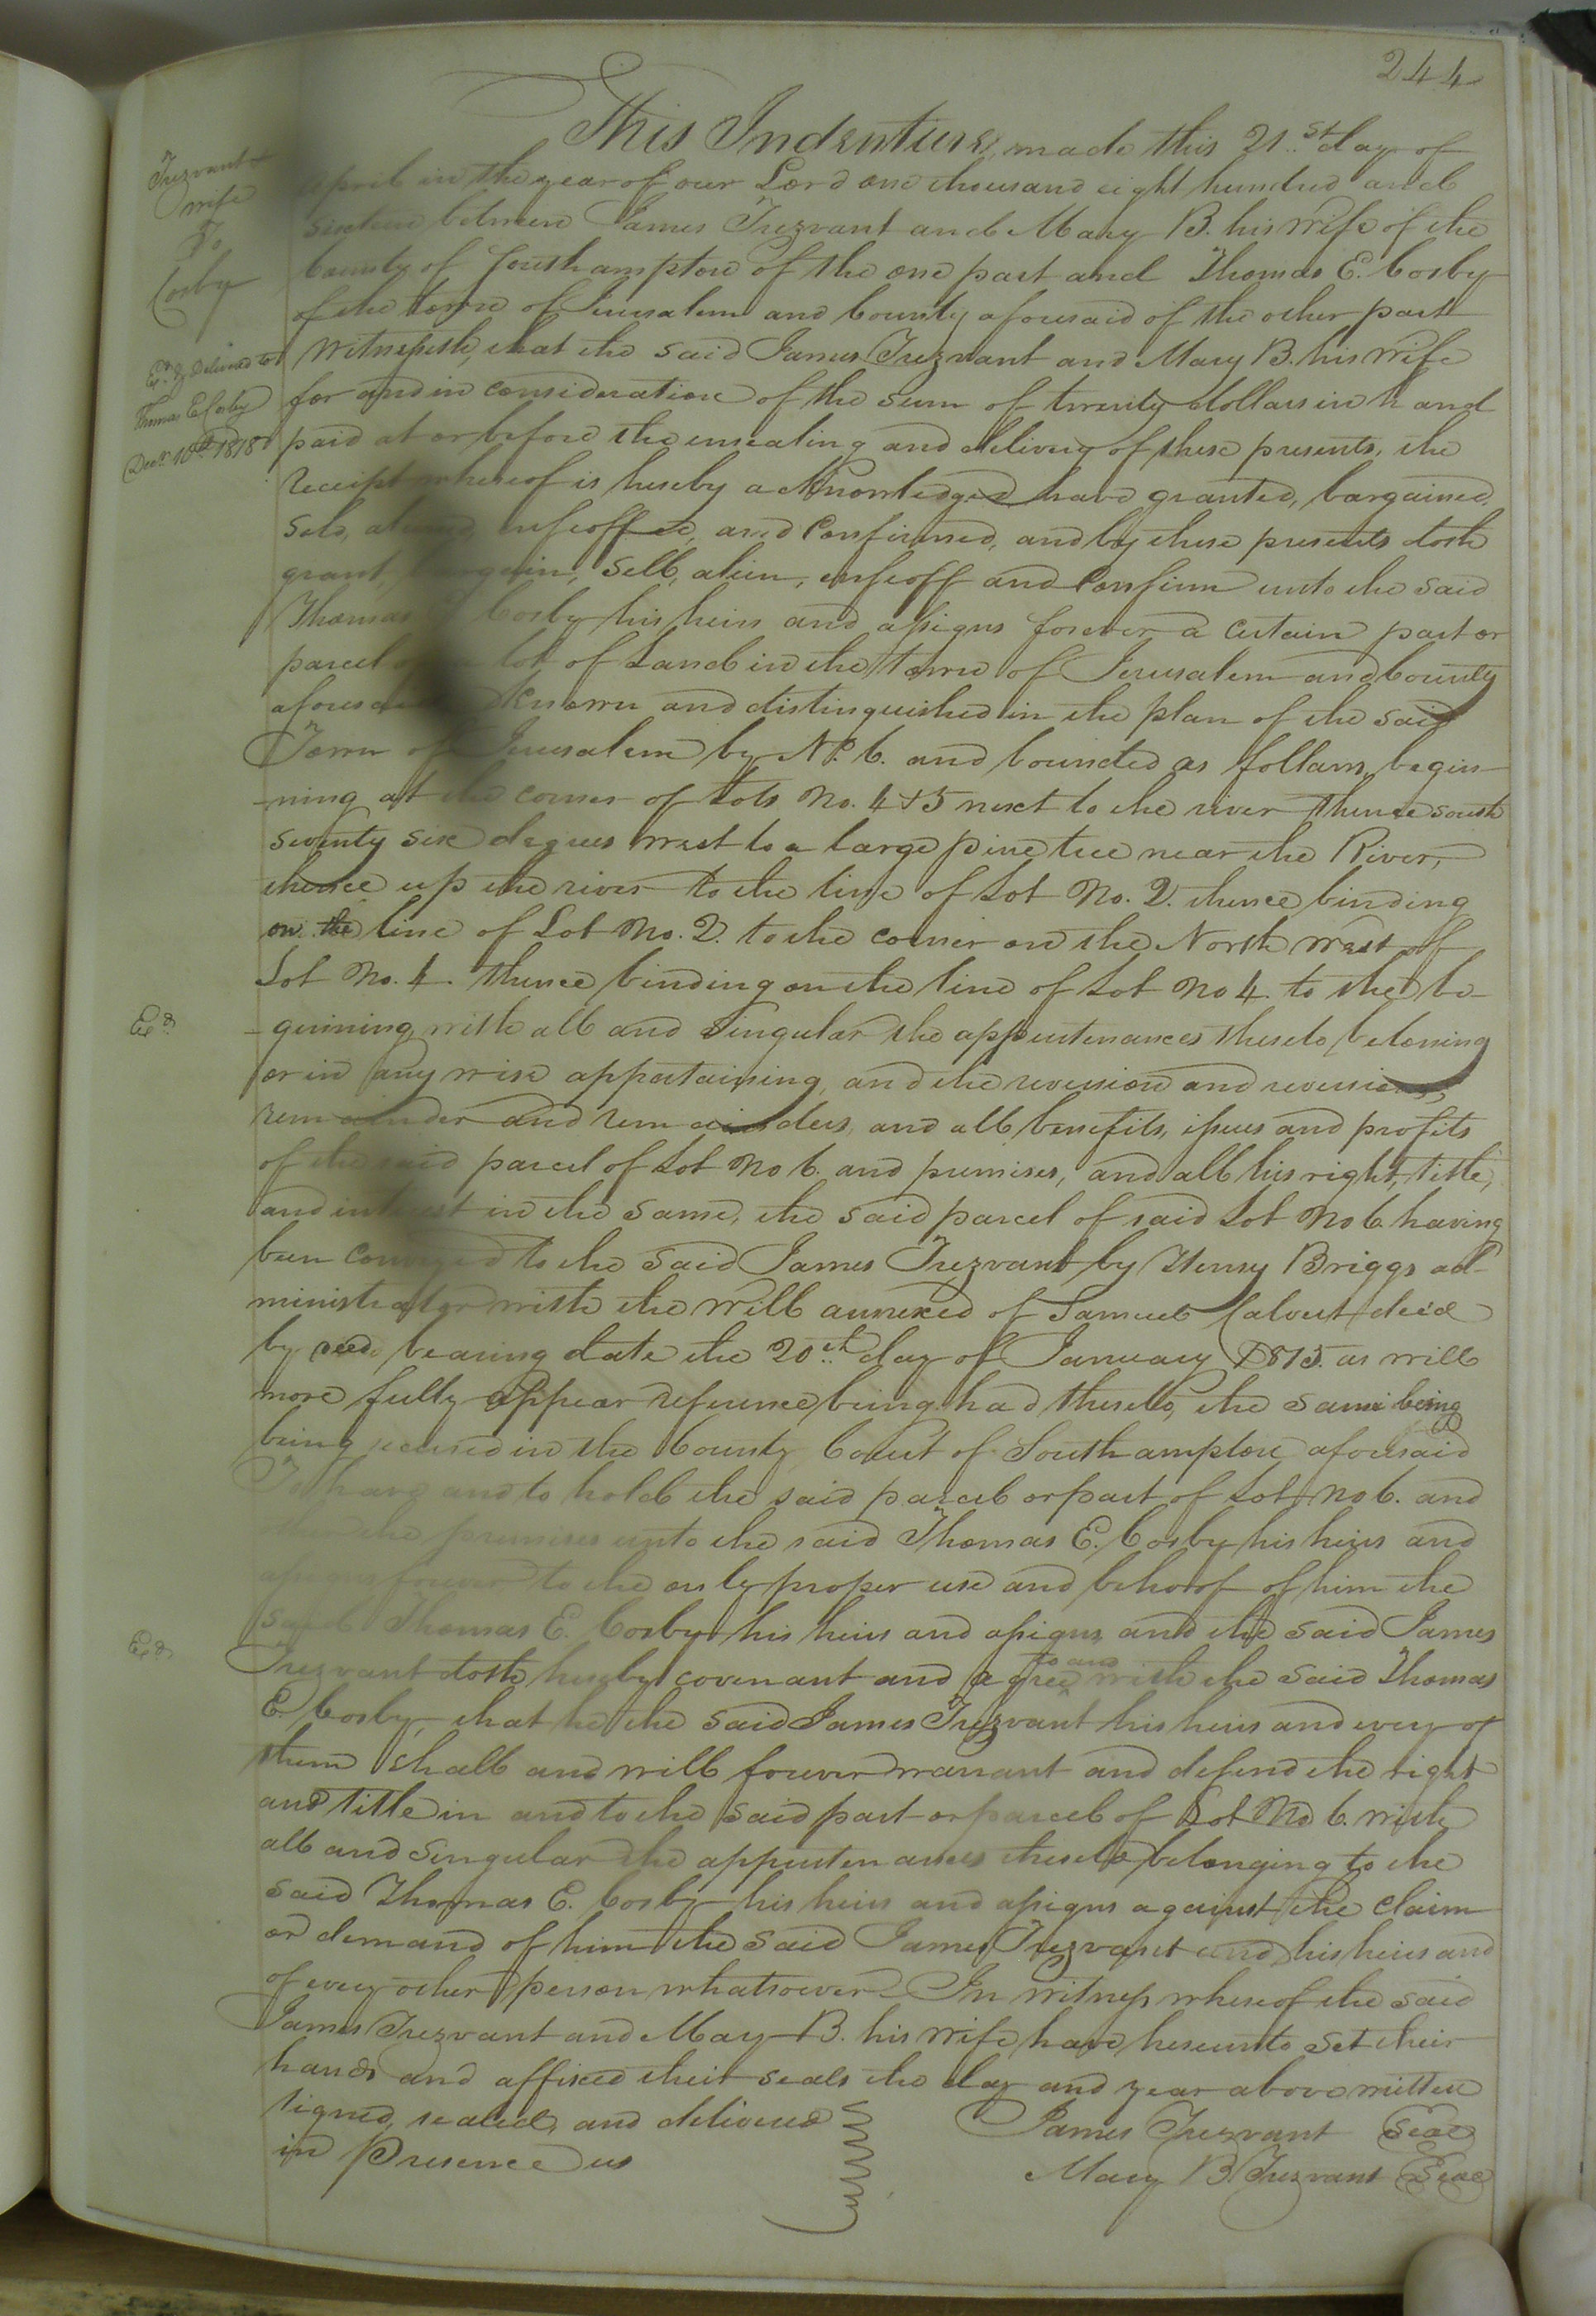 244
Trezvant
wife
To
Cosby
Exd. & delivered to
Thomas E Cosby
Decr. 10th 1818
This Indenture, made this 21..st day of
April in the year of our Lord one thousand eight hundred and
sixteen between James Trezvant and Mary B. his wife of the
County of Southampton of the one part and Thomas E. Cosby
of the town of Jerusalem and County aforesaid of the other part
Witnesseth, that the said James Trezvant and Mary B. his wife
for and in consideration of the sum of twenty dollars in hand
paid at or before the ensealing and delivery of these presents, the
receipt whereof is hereby acknowledged have granted, bargained,
sold, aliened, enfeoffed, and Confirmed, and by these presents doth
grant, bargain, sell, alien, enfeoff and Confirm unto the said
Thomas E Cosby his heirs and assigns forever a certain part or
parcel of a lot of Land in the town of Jerusalem and County
aforesaid known and distinguished in the plan of the said
Town of Jerusalem by No. 6. and bounded as follows, begin-
-ning at the corner of Lots No. 4 & 5 next to the river thence south
seventy six degrees west to a large pine tree near the River,
thence up the river to the line of Lot No. 2. thence binding
on the line of Lot No. 2. to the corner on the North west of
Lot No. 4. thence binding on the line of Lot No 4. to the be-
Exd.
-ginning with all and Singular the appurtenances thereto beloning
or in any wise appertaining, and the reversion and reversions,
remainder and remainders, and all benefits, issues and profits
of the said parcel of Lot No 6. and premises, and all his right, title,
and interest in the same, the said parcel of said Lot No 6. having
been conveyed to the said James Trezvant by Henry Briggs ad-
ministrator with the will annexed of Samuel Calvert decd
by deed bearing date the 20..th day of January 1815. as will
more fully appear reference being had thereto, the same being
being in the County Court of Southampton aforesaid
To have and to hold the said parcel or part of Lot No 6. and
the premises unto the said Thomas E. Cosby his heirs and
assigns forever to the only proper use and behoof of him the
said Thomas E. Cosby his heirs and assigns, and the said James
Exd.
Trezvant doth hereby covenant and agree to and with the said Thomas
E. Cosby, that he the said James Trezvant his heirs and every of
them shall and will forever warrant and defend the right
and title in and to the said part or parcel of Lot No 6. with
all and Singular the appurtenances thereto belonging to the
said Thomas E. Cosby his heirs and assigns against the claim
or demand of him the said James Trezvant and his heirs and
of every other person whatsoever. In witness whereof the said
James Trezvant and May B. his wife, have hereunto set their
hands and affixed their seals the day and year above written
signed, sealed, and delivered
in Presence us
James Trezvant Seal
Mary B. Trezvant Seal